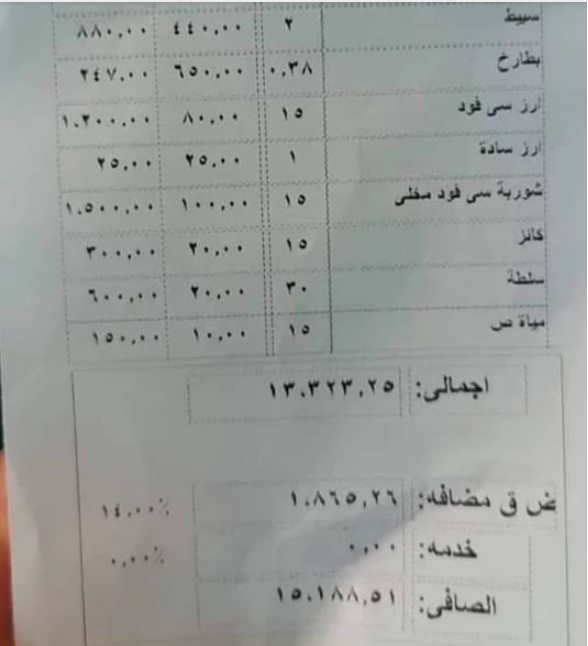 سبيط ٢ ٤٤٠,٠٠ ٨٨٠,٠٠
بطارخ ٠,٣٨ ٦٥٠,٠٠ ٢٤٧,٠٠
ارز سى فود ١٥ ٨٠,٠٠ ١.٢٠٠,٠٠
ارز سادة ١ ٢٥,٠٠ ٢٥,٠٠
شوربة سى فود مخلى ١٥ ١٠٠,٠٠ ١.٥٠٠,٠٠
كانز ١٥ ٢٠,٠٠ ٣٠٠,٠٠
سلطة ٣٠ ٢٠,٠٠ ٦٠٠,٠٠
مياة ص ١٥ ١٠,٠٠ ١٥٠,٠٠
اجمالى: ١٣.٣٢٣,٢٥
ض ق مضافه: ١.٨٦٥,٢٦ ١٤,٠٠٪
خدمه: ٠,٠٠ ٠,٠٠٪
الصافى: ١٥.١٨٨,٥١